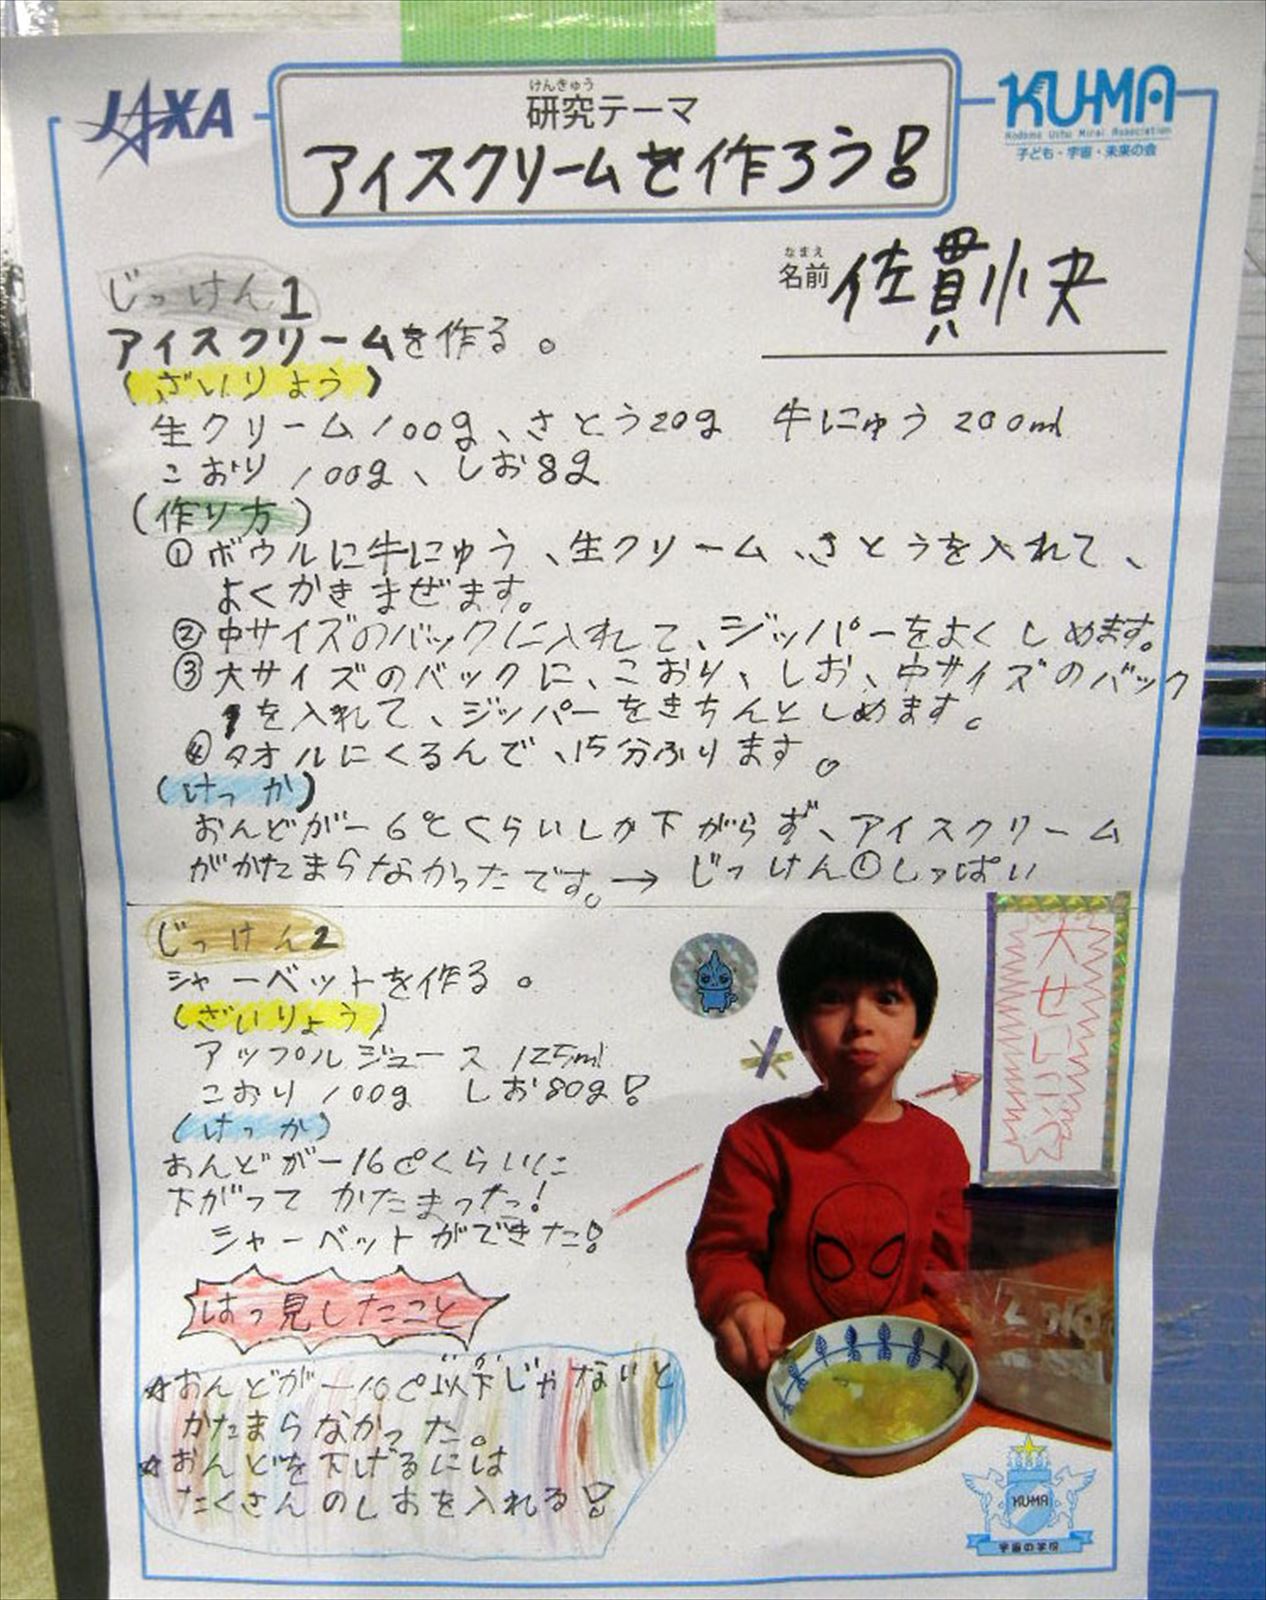 JAXA
けんきゅう
研究テーマ
アイスクリームを作ろう!
KU-MA
Kodomo Uchu Mirai Association
子ども・宇宙・未来の会
なまえ
名前 佐貫小夬
じっけん1
アイスクリームを作る。
(ざいりょう)
生クリーム100g、さとう20g 牛にゅう200ml
こおり100g、しお8g
(作り方)
①ボウルに牛にゅう、生クリーム、さとうを入れて、
よくかきまぜます。
②中サイズのバックに入れて、ジッパーをよくしめます。
③大サイズのバックに、こおり、しお、中サイズのバック
を入れて、ジッパーをきちんとしめます。
④タオルにくるんで、15分ふります。
(けっか)
おんどがー6℃くらいしか下がらず、アイスクリーム
がかたまらなかったです。→ じっけん①しっぱい
じっけん2
シャーベットを作る。
(ざいりょう)
アップルジュース 125ml
こおり100g しお80g!
(けっか)
おんどがー16℃くらいに
下がって かたまったっ!
シャーベットができた!
大せいこう
はっ見したこと
☆おんどがー10℃以下じゃないと
かたまらなかった。
☆おんどを下げるには
たくさんのしおを入れる!
Ziploc
KU-MA
宇宙の学校